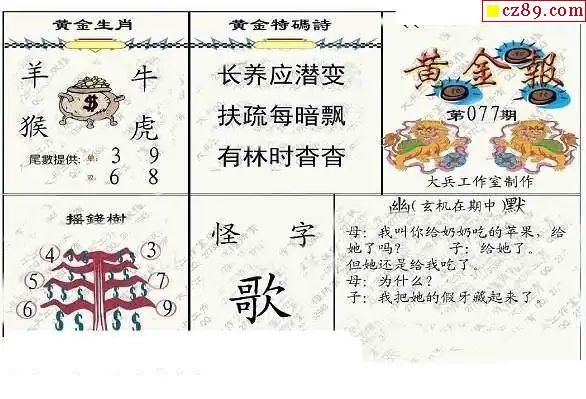 cz89.com
黄金生肖
羊 牛
猴 虎
$
尾數提供: 单: 3 9
双: 6 8
黄金特碼詩
长养应潜变
扶疏每暗飘
有林时杳杳
黄金報
第077期
大兵工作室制作
摇錢樹
4 3
5 7
6 9
怪 字
歌
幽(玄机在期中)默
母:我叫你给奶奶吃的苹果,给
她了吗? 子:给她了。
但她还是给我吃了。
母:为什么?
子:我把她的假牙藏起来了。